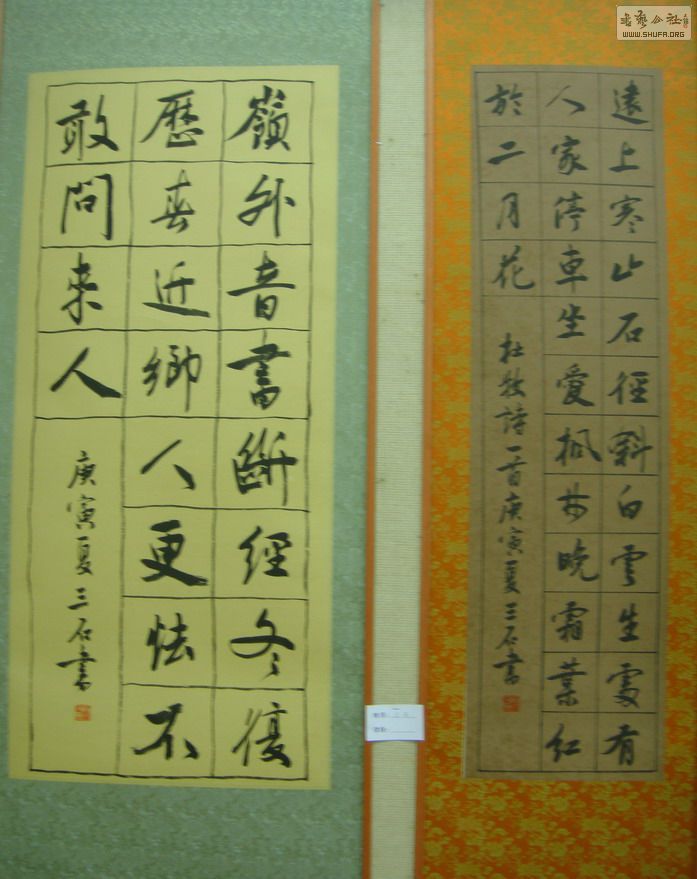 書藝公社
WWW.SHUFA.ORG
遠上寒山石徑斜白雲生處有
人家停車坐愛楓林晚霜葉紅
於二月花
杜牧詩一首庚寅夏三石書
嶺外音書斷經冬復
歷春近鄉人更怯不
敢問來人
庚寅夏三石書